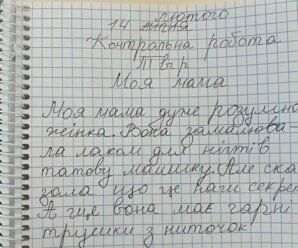 лютого
14 липня
Контрольна робота
ІІ Вар
Моя мама
Моя мама дуже розумна
жінка. Вона замалюва
ла лаком для нігтів
татову машину. Але ска
зала що це наш секре
А ще вона має гарні
трусики з ниточок